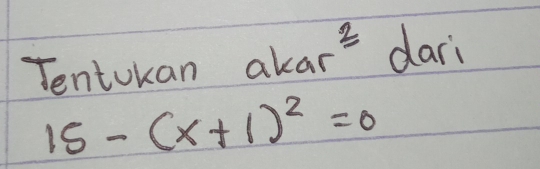 Tentukan akar² dari
15 - (x+1)² = 0